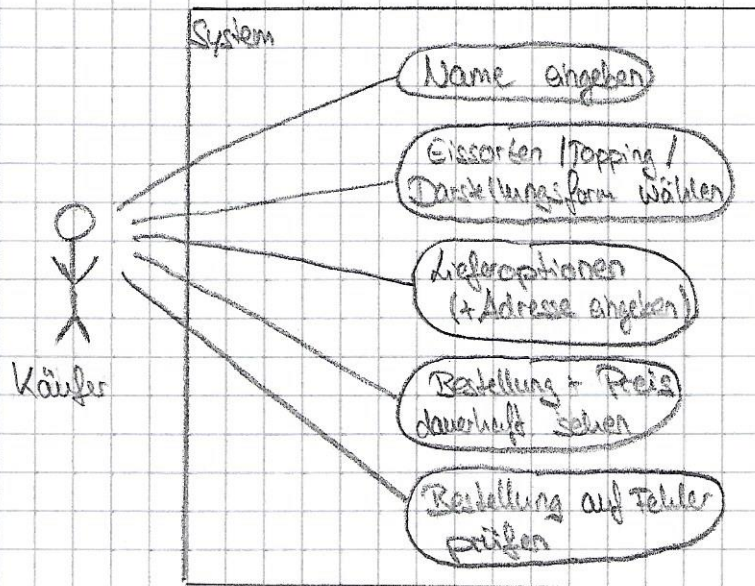 System
Name eingeben
Eissorten / Topping /
Darstellungsform wählen
Lieferoptionen
(+ Adresse eingeben)
Käufer
Bestellung + Preis
dauerhaft sehen
Bestellung auf Fehler
prüfen